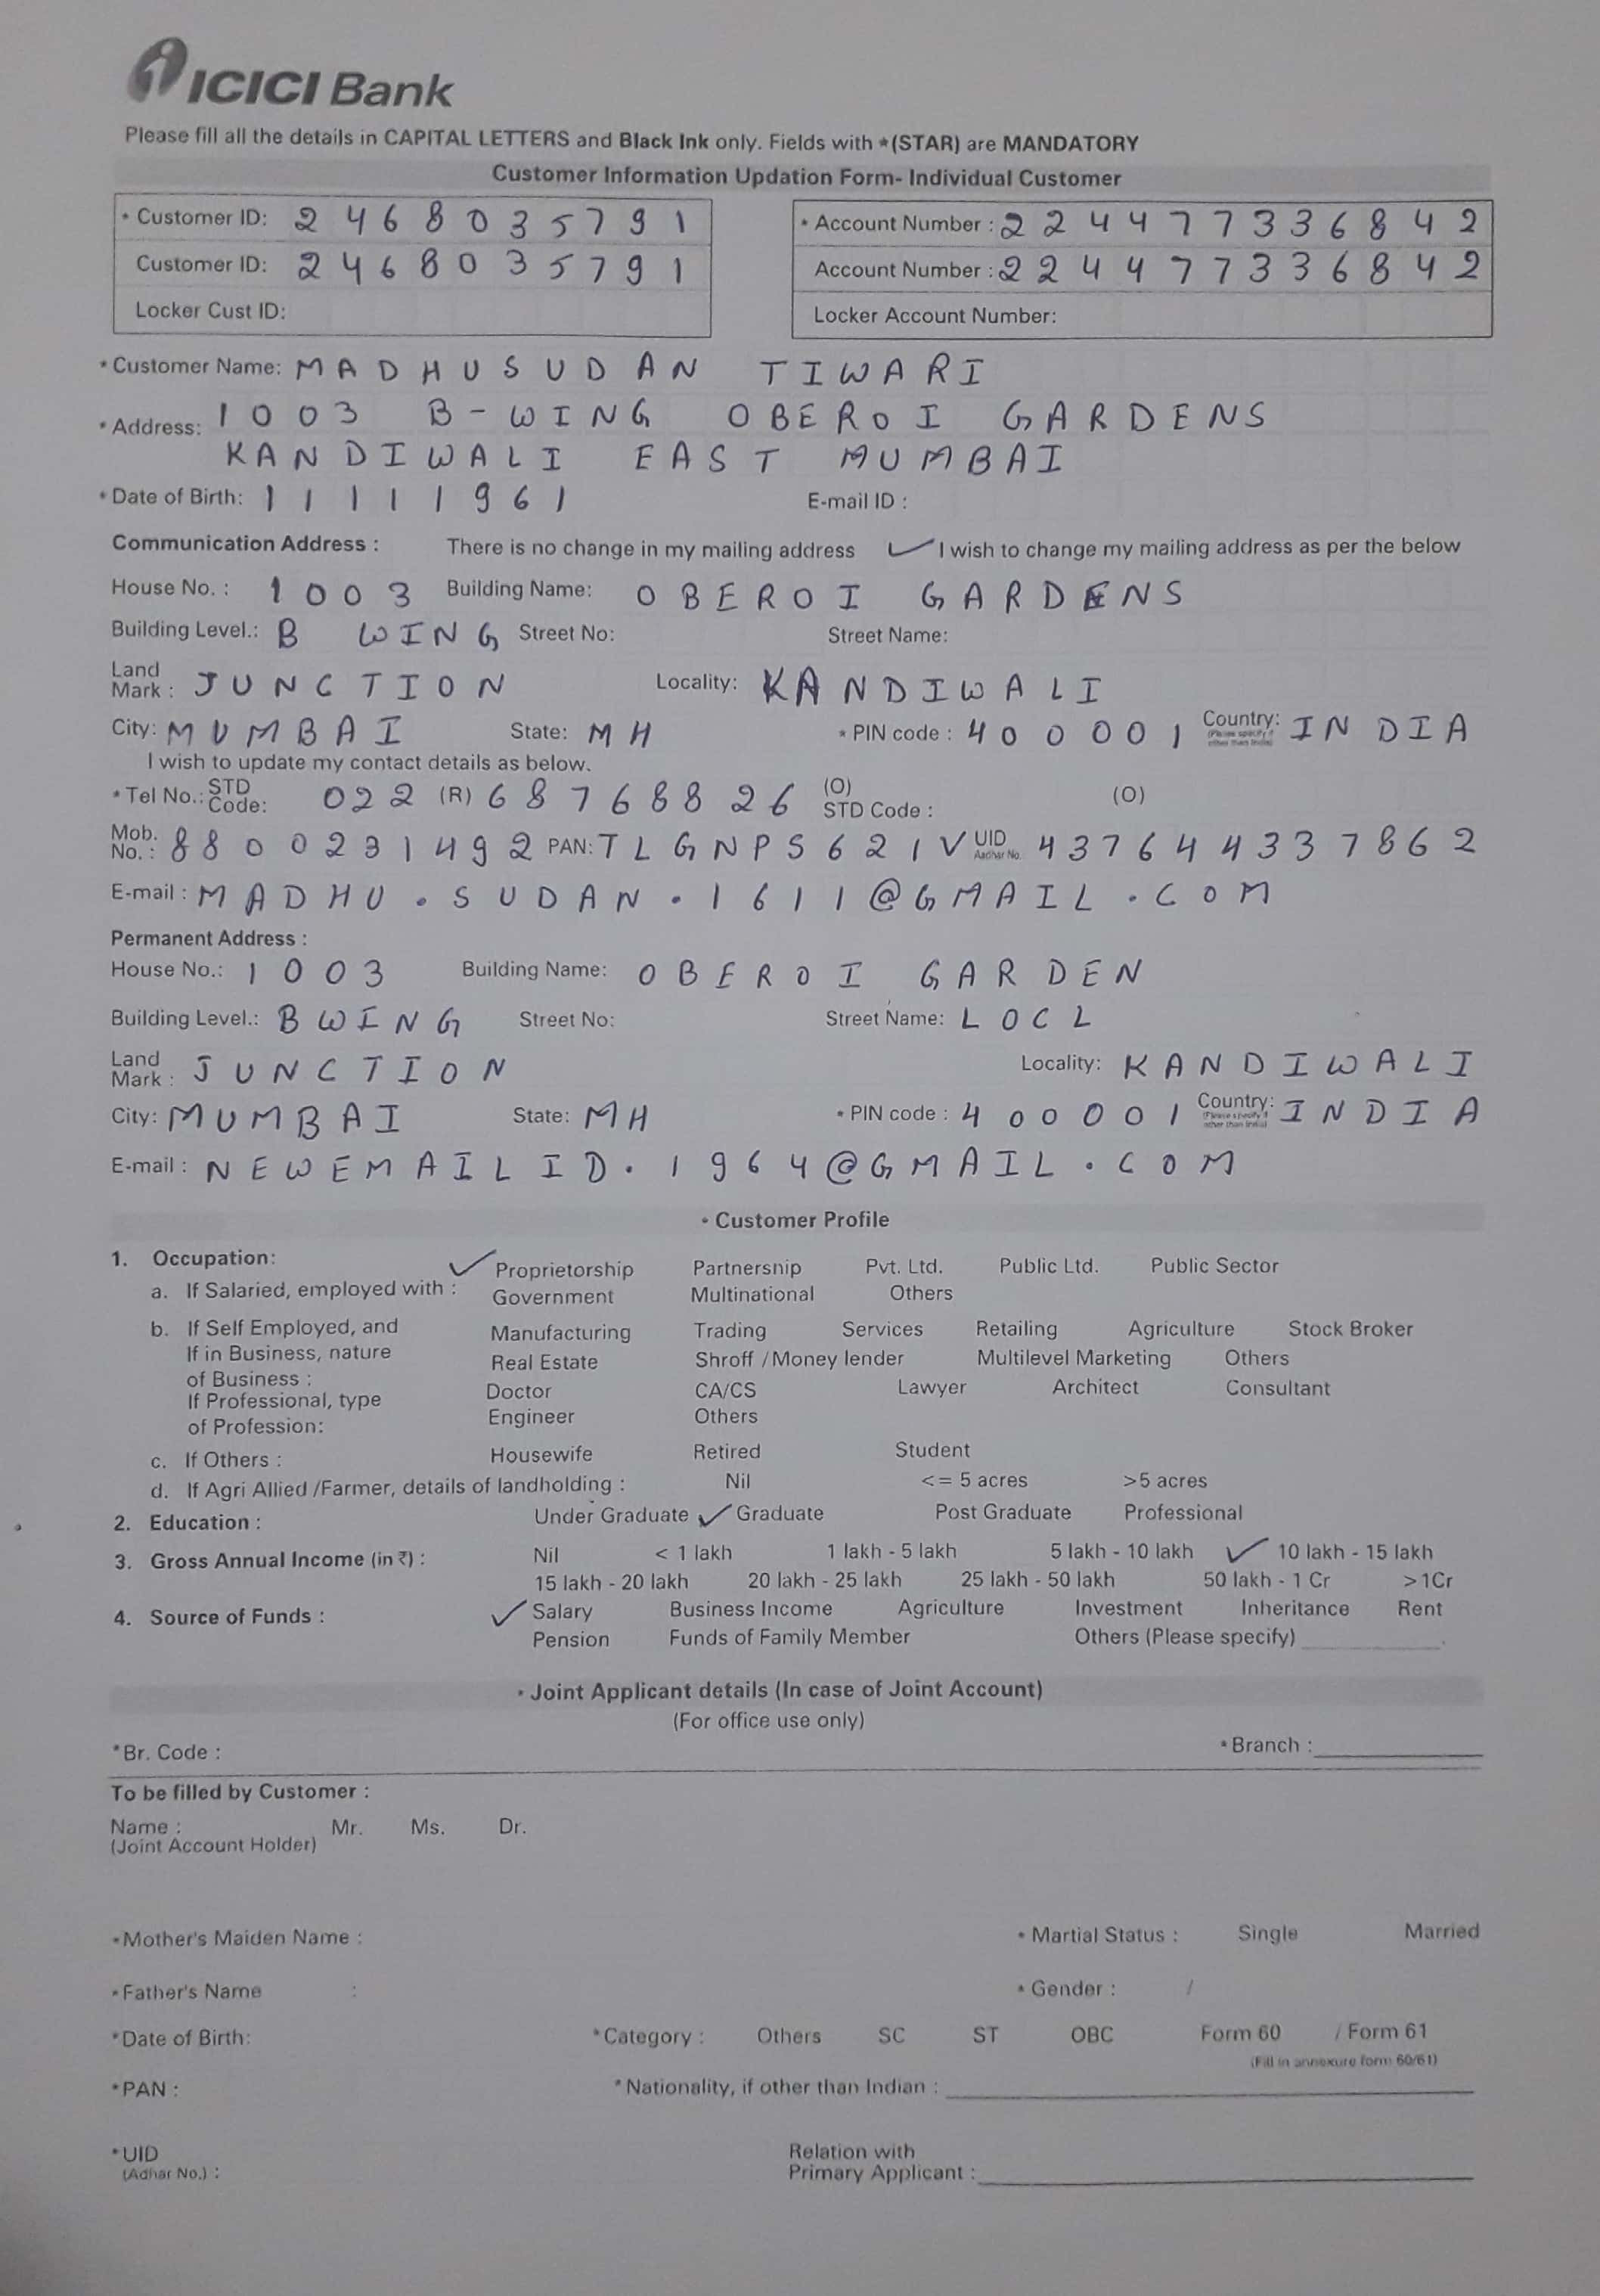 ICICI Bank
Please fill all the details in CAPITAL LETTERS and Black Ink only. Fields with *(STAR) are MANDATORY
Customer Information Updation Form- Individual Customer
* Customer ID: 2468035791 * Account Number : 224477336842
Customer ID: 2468035791 Account Number : 224477336842
Locker Cust ID: Locker Account Number:
* Customer Name: MADHUSUDAN TIWARI
* Address: 1003 B-WING OBEROI GARDENS
KANDIWALI EAST MUMBAI
* Date of Birth: 11111961 E-mail ID :
Communication Address : There is no change in my mailing address ✓ I wish to change my mailing address as per the below
House No. : 1003 Building Name: OBEROI GARDENS
Building Level.: B WING Street No: Street Name:
Land Mark : JUNCTION Locality: KANDIWALI
City: MUMBAI State: MH * PIN code : 400001 Country: (Please specify if other than India) INDIA
I wish to update my contact details as below.
* Tel No.: STD Code: 022 (R) 68768826 (O) STD Code : (O)
Mob. No. : 8800231492 PAN: TLGNPS621V UID Aadhar No. 437644337862
E-mail : MADHU.SUDAN.1611@GMAIL.COM
Permanent Address :
House No.: 1003 Building Name: OBEROI GARDEN
Building Level.: B WING Street No: Street Name: LOCL
Land Mark : JUNCTION Locality: KANDIWALI
City: MUMBAI State: MH * PIN code : 400001 Country: (Please specify if other than India) INDIA
E-mail : NEWEMAILID.1964@GMAIL.COM
* Customer Profile
1. Occupation:
a. If Salaried, employed with : ✓ Proprietorship Partnership Pvt. Ltd. Public Ltd. Public Sector
Government Multinational Others
b. If Self Employed, and Manufacturing Trading Services Retailing Agriculture Stock Broker
If in Business, nature Real Estate Shroff /Money lender Multilevel Marketing Others
of Business :
If Professional, type Doctor CA/CS Lawyer Architect Consultant
of Profession: Engineer Others
c. If Others : Housewife Retired Student
d. If Agri Allied /Farmer, details of landholding : Nil <= 5 acres >5 acres
2. Education : Under Graduate ✓ Graduate Post Graduate Professional
3. Gross Annual Income (in ₹) : Nil < 1 lakh 1 lakh - 5 lakh 5 lakh - 10 lakh ✓ 10 lakh - 15 lakh
15 lakh - 20 lakh 20 lakh - 25 lakh 25 lakh - 50 lakh 50 lakh - 1 Cr >1Cr
4. Source of Funds : ✓ Salary Business Income Agriculture Investment Inheritance Rent
Pension Funds of Family Member Others (Please specify)
* Joint Applicant details (In case of Joint Account)
(For office use only)
*Br. Code : * Branch :
To be filled by Customer :
Name : Mr. Ms. Dr.
(Joint Account Holder)
*Mother's Maiden Name : * Martial Status : Single Married
*Father's Name : * Gender : /
*Date of Birth: *Category : Others SC ST OBC Form 60 / Form 61
(Fill in annexure form 60/61)
*PAN : *Nationality, if other than Indian :
*UID Relation with
(Adhar No.) : Primary Applicant :